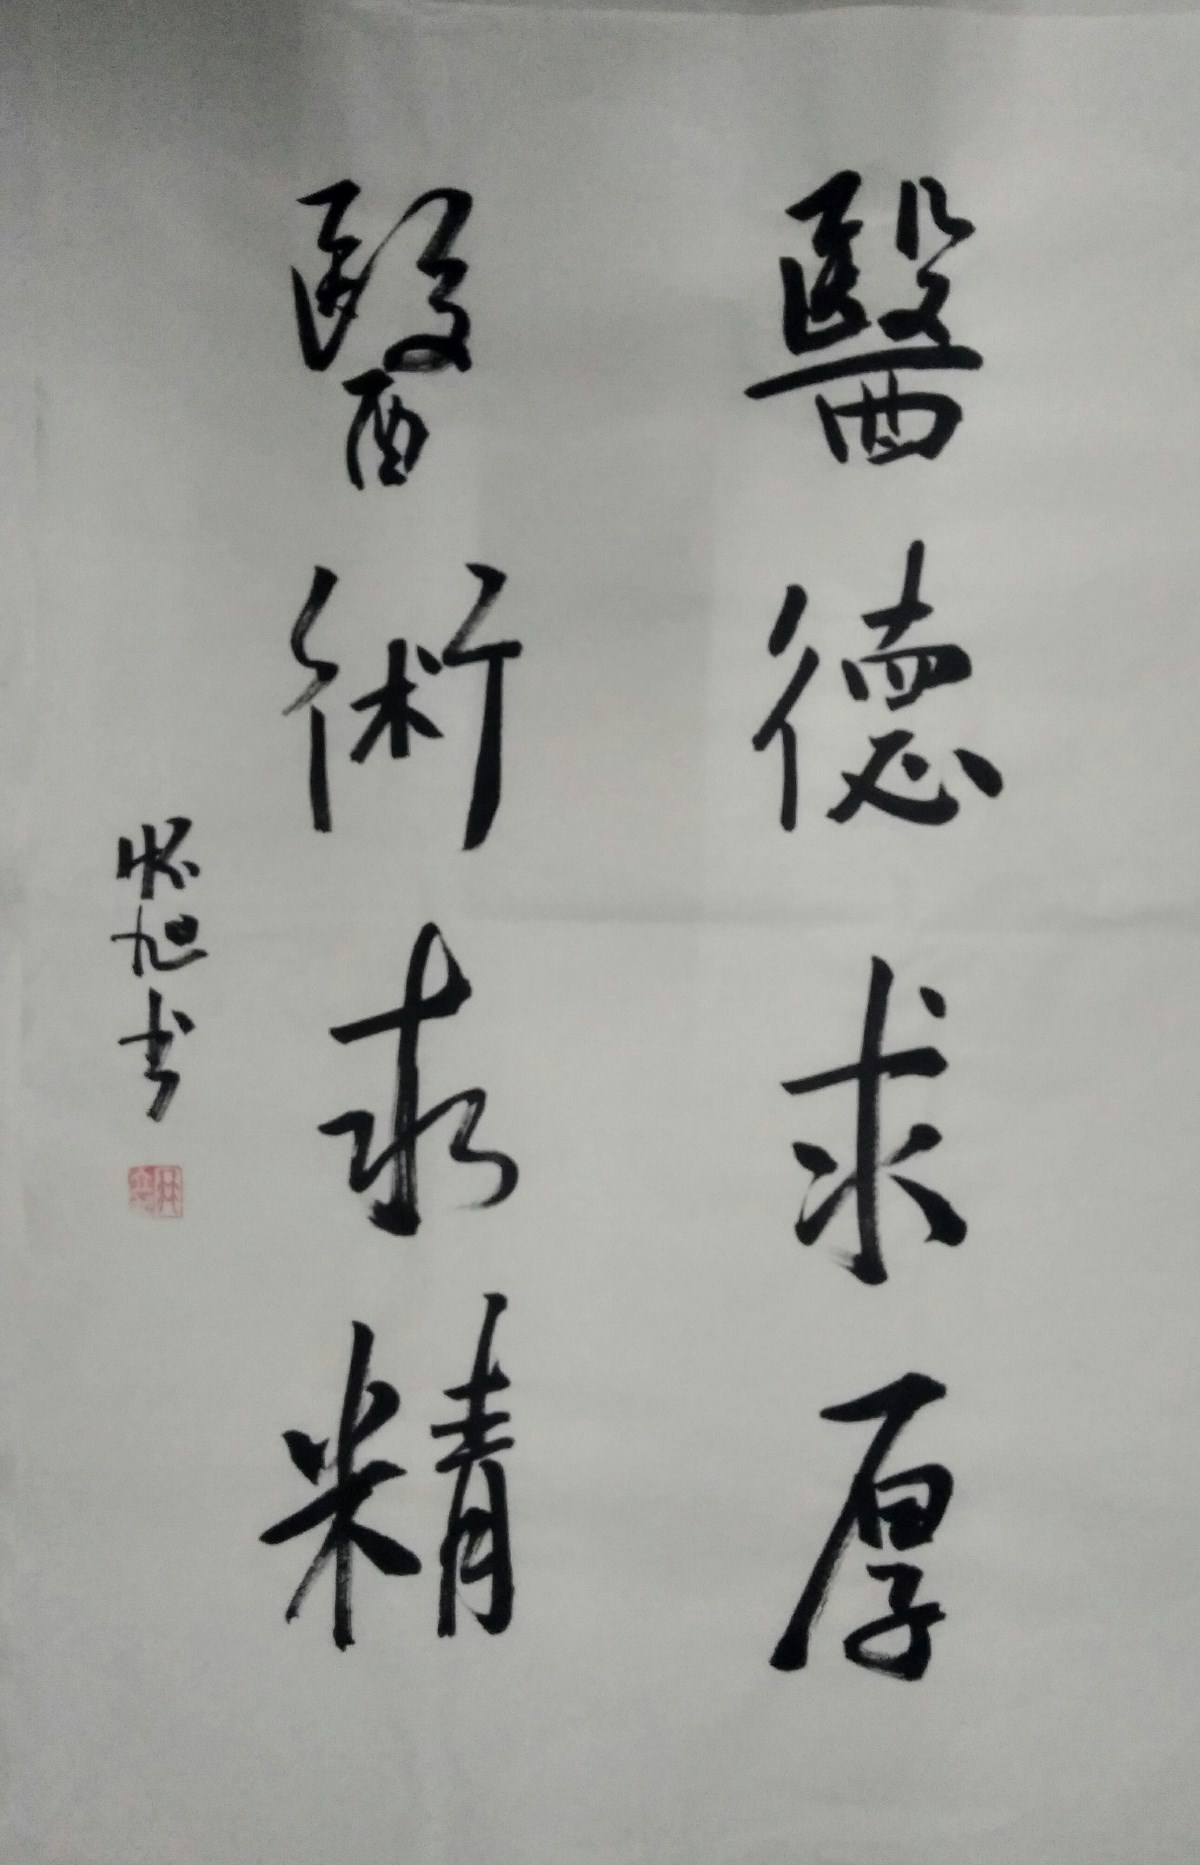 醫德求厚
醫術求精
怀旭书